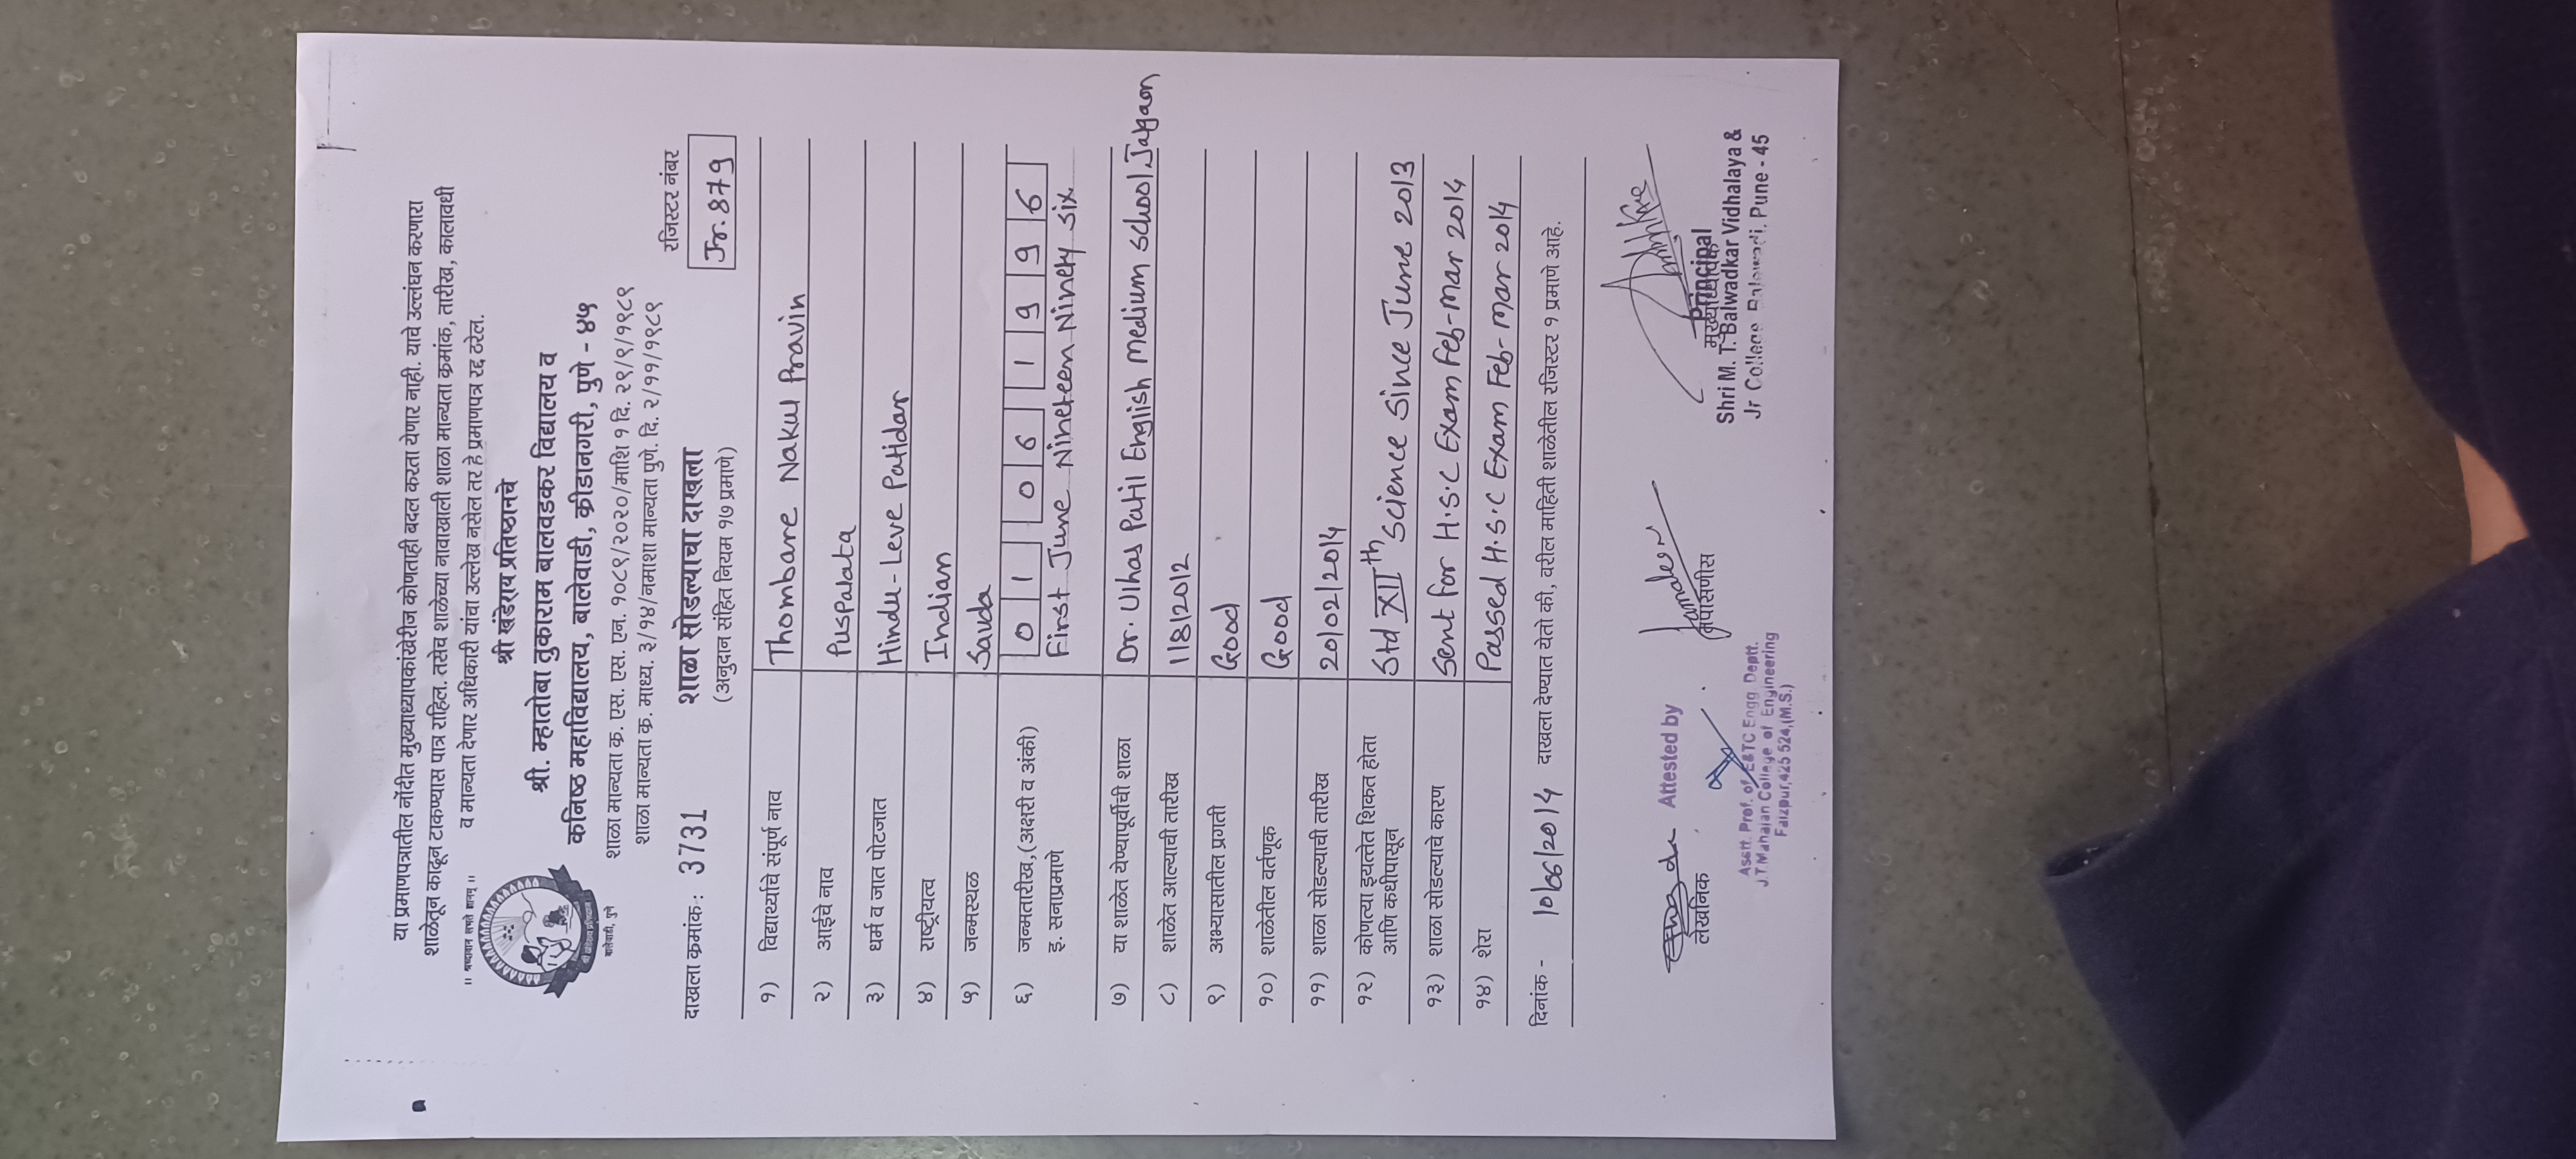 या प्रमाणपत्रातील नोंदीत मुख्याध्यापकांखेरीज कोणताही बदल करता येणार नाही. याचे उल्लंघन करणारा
शाळेतून काढून टाकण्यास पात्र राहिल. तसेच शाळेच्या नावाखाली शाळा मान्यता क्रमांक, तारीख, कालावधी
व मान्यता देणार अधिकारी यांचा उल्लेख नसेल तर हे प्रमाणपत्र रद्द ठरेल.
॥ श्रध्दावान लभते ज्ञानम् ॥
श्री खंडेराय प्रतिष्ठानचे
श्री. म्हातोबा तुकाराम बालवडकर विद्यालय व
कनिष्ठ महाविद्यालय, बालेवाडी, क्रीडानगरी, पुणे - ४५
बालेवाडी, पुणे
शाळा मान्यता क. एस. एस. एन. १०८९/२०२०/माशि १ दि. २९/९/१९८९
शाळा मान्यता क. माध्य. ३/१४/नमाशा मान्यता पुणे. दि. २/११/१९८९
रजिस्टर नंबर
दाखला क्रमांक : 3731 शाळा सोडल्याचा दाखला Jr. 879
(अनुदान संहित नियम १७ प्रमाणे)
१) विद्यार्थ्याचे संपूर्ण नाव Thombare Nakul Pravin
२) आईचे नाव Puspalata
३) धर्म व जात पोटजात Hindu - Leve Patidar
४) राष्ट्रीयत्व Indian
५) जन्मस्थळ Savda
६) जन्मतारीख,(अक्षरी व अंकी) 0 1 0 6 1 9 9 6
इ. सनाप्रमाणे First June Nineteen Ninety six
७) या शाळेत येण्यापूर्वीची शाळा Dr. Ulhas Patil English Medium school Jalgaon
८) शाळेत आल्याची तारीख 1/8/2012
९) अभ्यासातील प्रगती Good
१०) शाळेतील वर्तणूक Good
११) शाळा सोडल्याची तारीख 20/02/2014
१२) कोणत्या इयत्तेत शिकत होता Std XIIth Science Since June 2013
आणि कधीपासून
१३) शाळा सोडल्याचे कारण Sent for H.S.C Exam Feb-Mar 2014
१४) शेरा Passed H.S.C Exam Feb- Mar 2014
दिनांक - 10/06/2014 दाखला देण्यात येतो की, वरील माहिती शाळेतील रजिस्टर १ प्रमाणे आहे.
लेखनिक
Attested by
Asstt. Prof. of E&TC Engg Deptt.
J.T.Mahajan College of Engineering
Faizpur,425 524,(M.S.)
तपासणीस
Principal
मुख्याध्यापक
Shri M. T. Balwadkar Vidhalaya &
Jr College Balewadi, Pune - 45